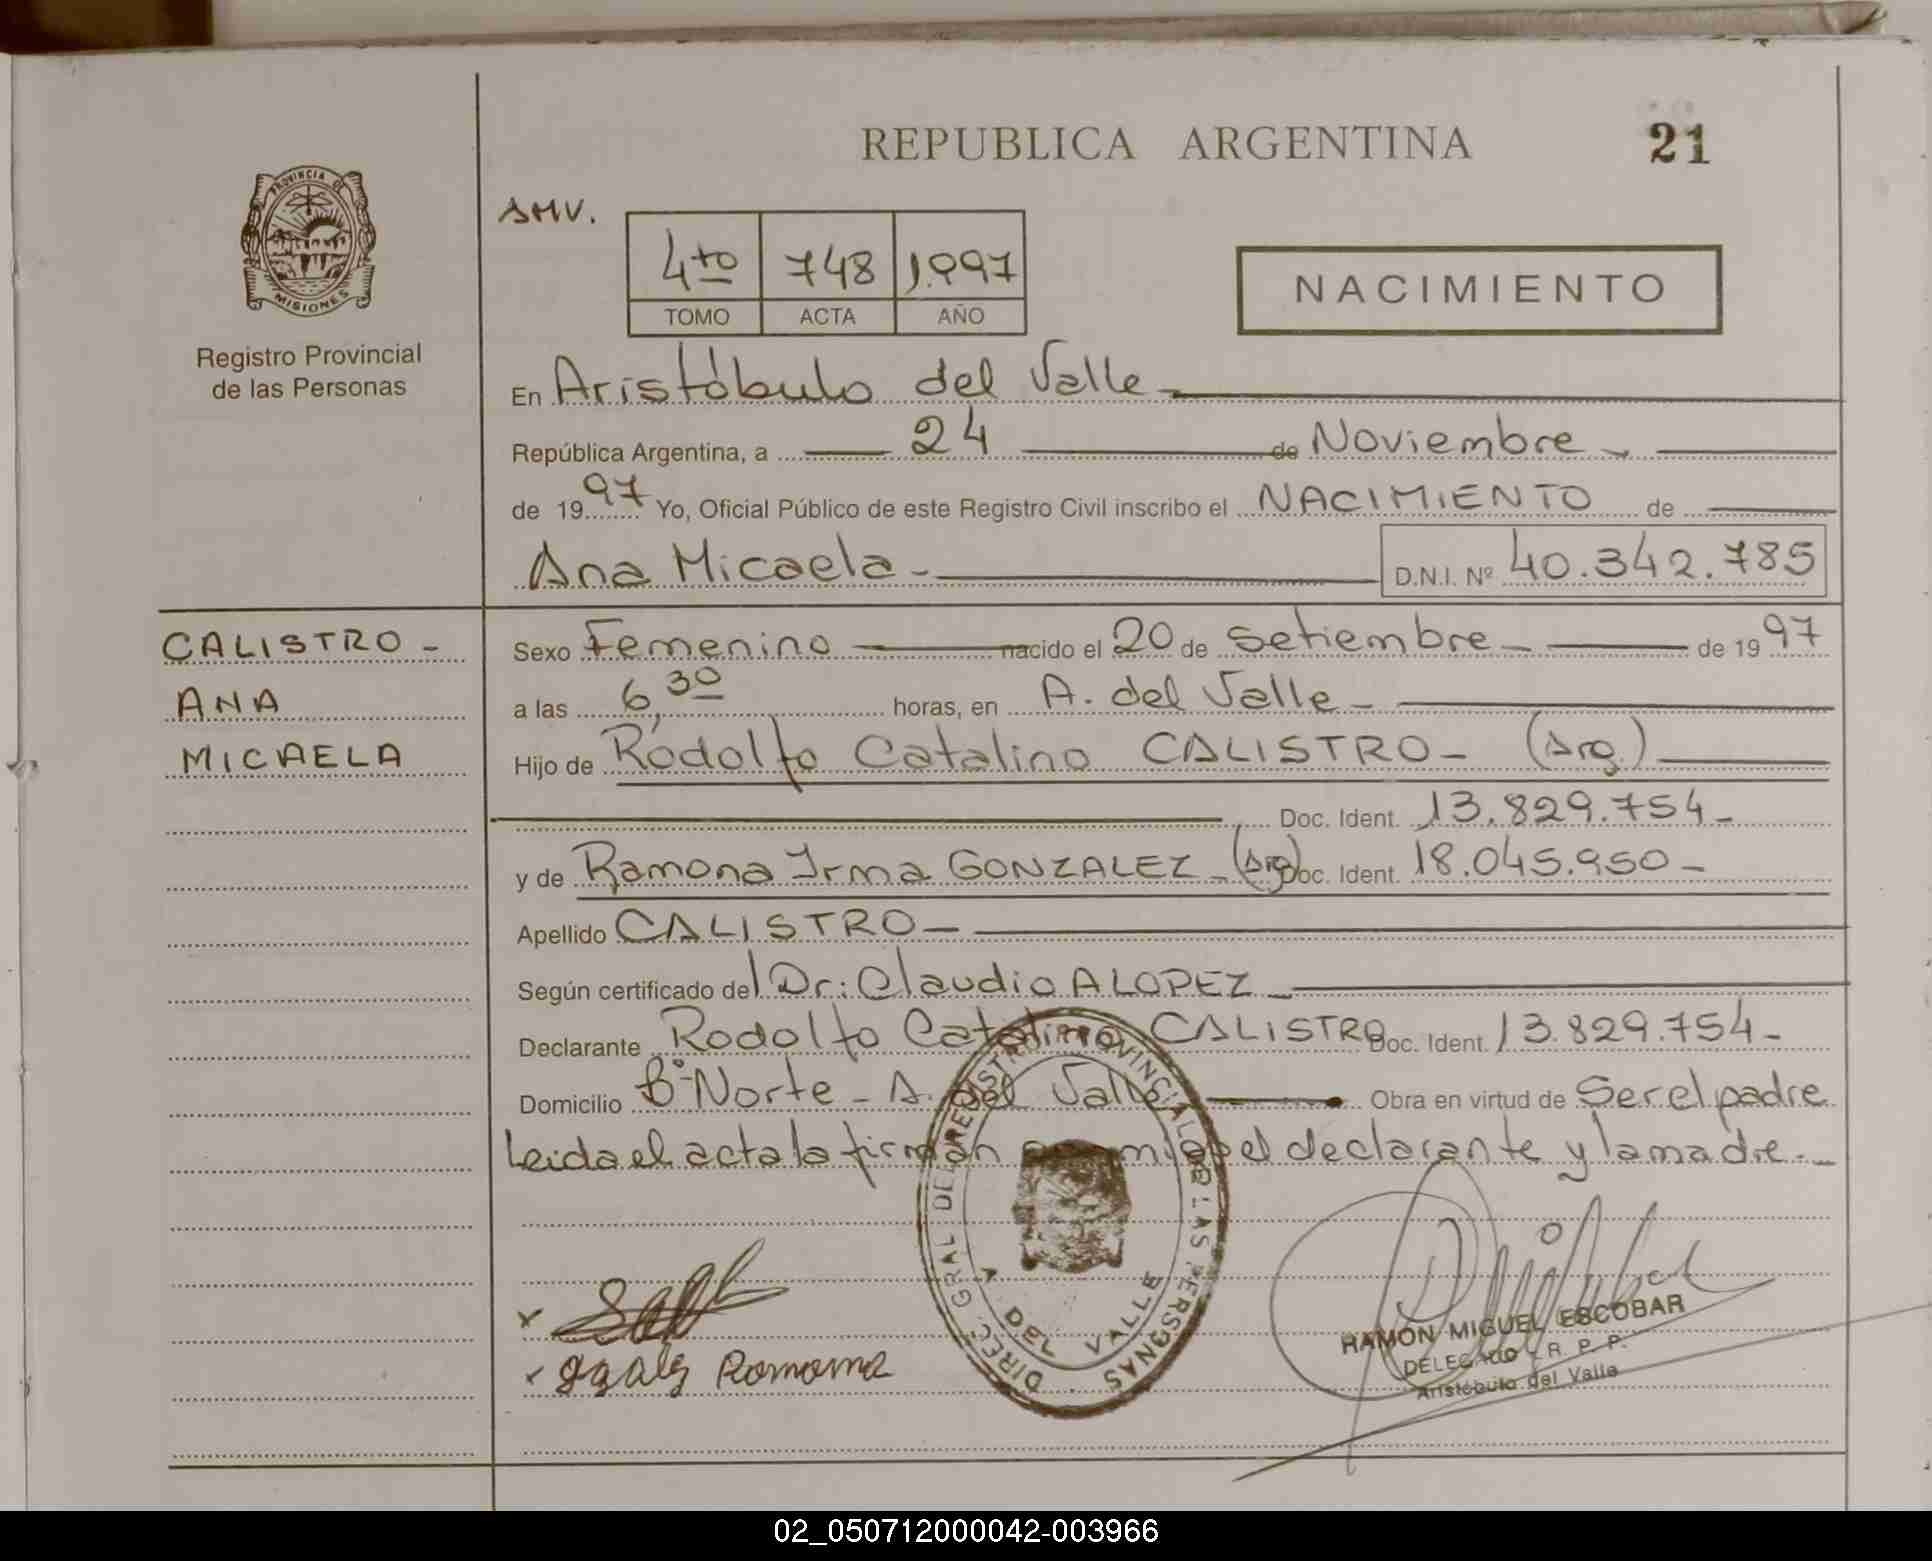 REPUBLICA ARGENTINA
21
PROVINCIA DE
MISIONES
Registro Provincial
de las Personas
SMV.
4to 748 1.997
TOMO ACTA AÑO
NACIMIENTO
En Aristóbulo del Valle -
República Argentina, a 24 de Noviembre -
de 1997 Yo, Oficial Público de este Registro Civil inscribo el NACIMIENTO de
Ana Micaela - D.N.I. Nº 40.342.785
CALISTRO -
ANA
MICAELA
Sexo Femenino nacido el 20 de Setiembre - de 1997
a las 6,30 horas, en A. del Valle -
Hijo de Rodolfo Catalino CALISTRO - (Arg)
Doc. Ident. 13.829.754 -
y de Ramona Irma GONZALEZ - (Arg) Doc. Ident. 18.045.950 -
Apellido CALISTRO -
Según certificado del Dr: Claudio A LOPEZ -
Declarante Rodolfo Catalino CALISTRO Doc. Ident. 13.829.754 -
Domicilio Bº Norte - A. del Valle Obra en virtud de Ser el padre
Leida el acta la firman mi el declarante y la madre. -
DIREC. GRAL DEL REGISTRO PROVINCIAL DE LAS PERSONAS
A DEL VALLE
x
x Ramona
RAMON MIGUEL ESCOBAR
DELEGADO - R. P. P.
Aristóbulo del Valle
02_050712000042-003966